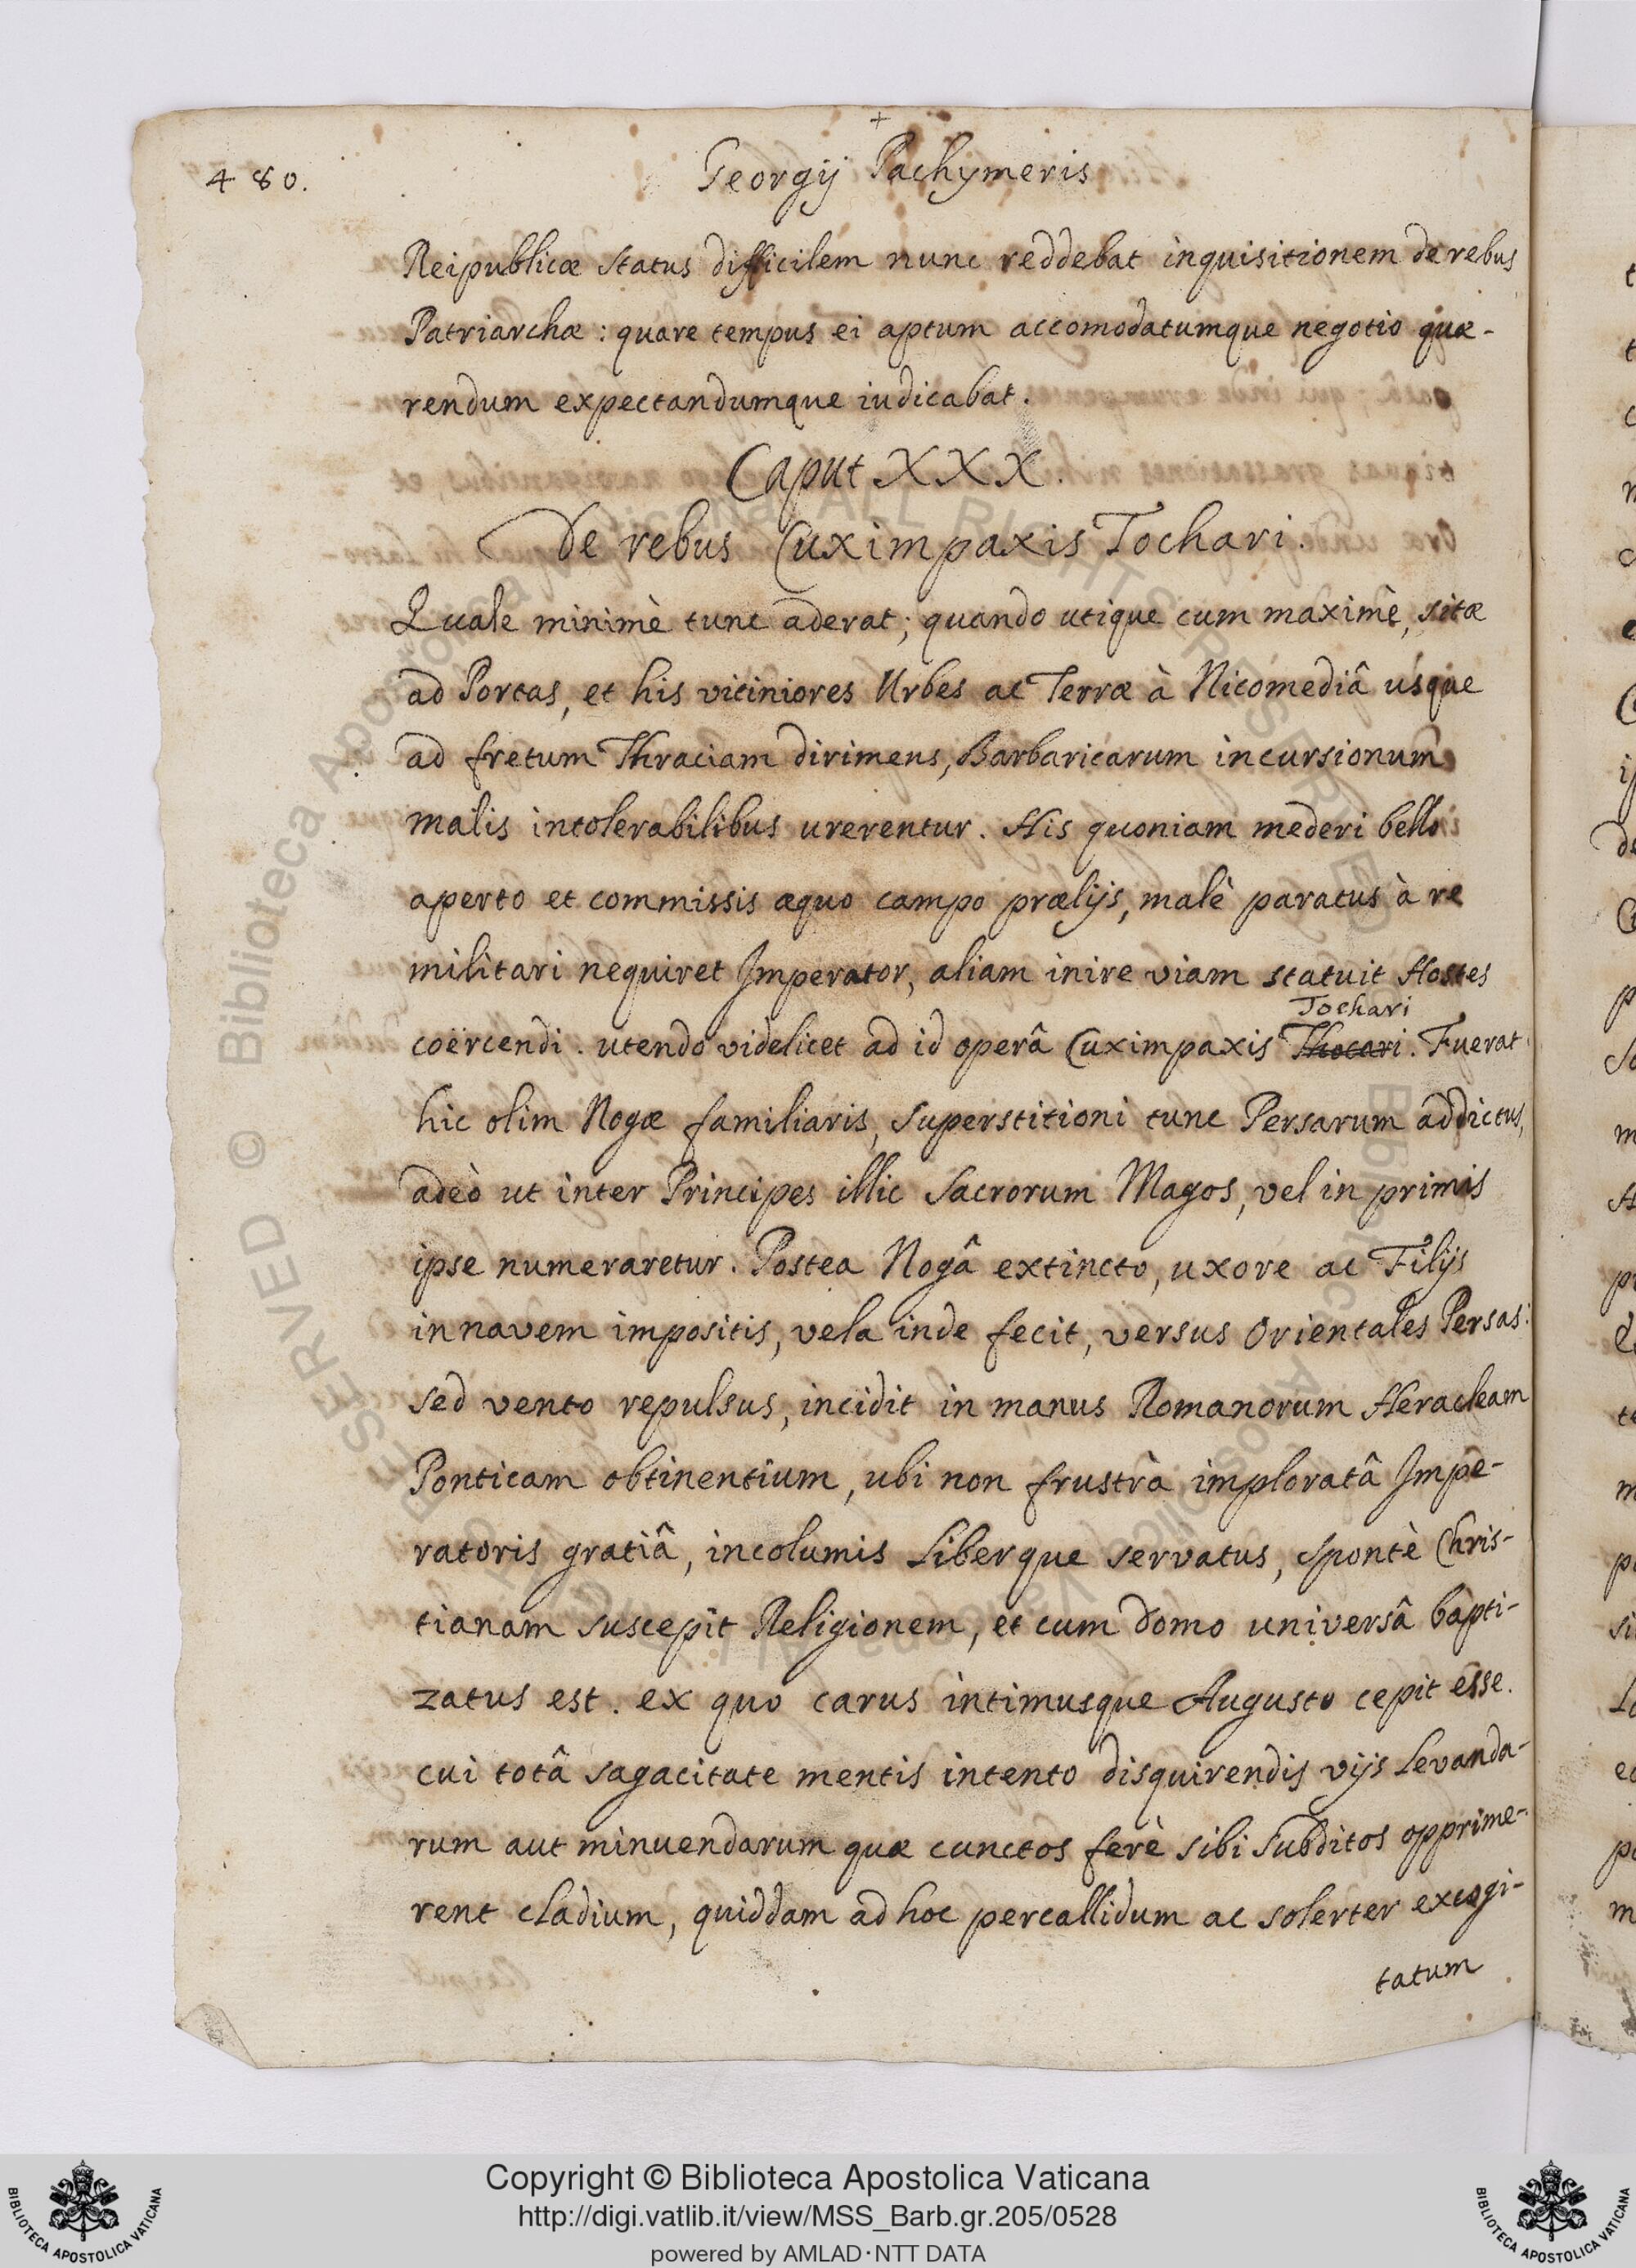 +
480.
Georgij Pachymeris
Reipublicæ status difficilem nunc reddebat inquisitionem de rebus
Patriarchæ : quare tempus ei aptum accomodatumque negotio quæ-
rendum expectandumque iudicabat.
Caput XXX.
De rebus Cuximpaxis Tochari.
Quale minimè tunc aderat; quando utique cum maximè, sitæ
ad Portas, et his viciniores Urbes ac Terræ à Nicomediâ usque
ad fretum Thraciam dirimens, Barbaricarum incursionum
malis intolerabilibus urerentur. His quoniam mederi bello
aperto et commissis æquo campo prælijs, malè paratus à re
militari nequiret Imperator, aliam inire viam statuit Hostes
Tochari
coërcendi. utendo videlicet ad id operâ Cuximpaxis Thocari. Fuerat
hic olim Nogæ familiaris, superstitioni tunc Persarum addictus,
adeò ut inter Principes illic Sacrorum Magos, vel in primis
ipse numeraretur. Postea Nogâ extincto, uxore ac Filijs
in navem impositis, vela inde fecit, versus Orientales Persas:
sed vento repulsus, incidit in manus Romanorum Heracleam
Ponticam obtinentium, ubi non frustrà imploratâ Impe-
ratoris gratiâ, incolumis Liberque servatus, spontè Chris-
tianam suscepit Religionem, et cum domo universâ bapti-
zatus est. ex quo carus intimusque Augusto cepit esse.
cui totâ sagacitate mentis intento disquirendis vijs Levanda-
rum aut minuendarum quæ cunctos ferè sibi subditos opprime-
rent cladium, quiddam ad hoc percallidum ac solerter excogi-
tatum
Copyright © Biblioteca Apostolica Vaticana
http://digi.vatlib.it/view/MSS_Barb.gr.205/0528
powered by AMLAD·NTT DATA
BIBLIOTECA APOSTOLICA VATICANA
BIBLIOTECA APOSTOLICA VATICANA